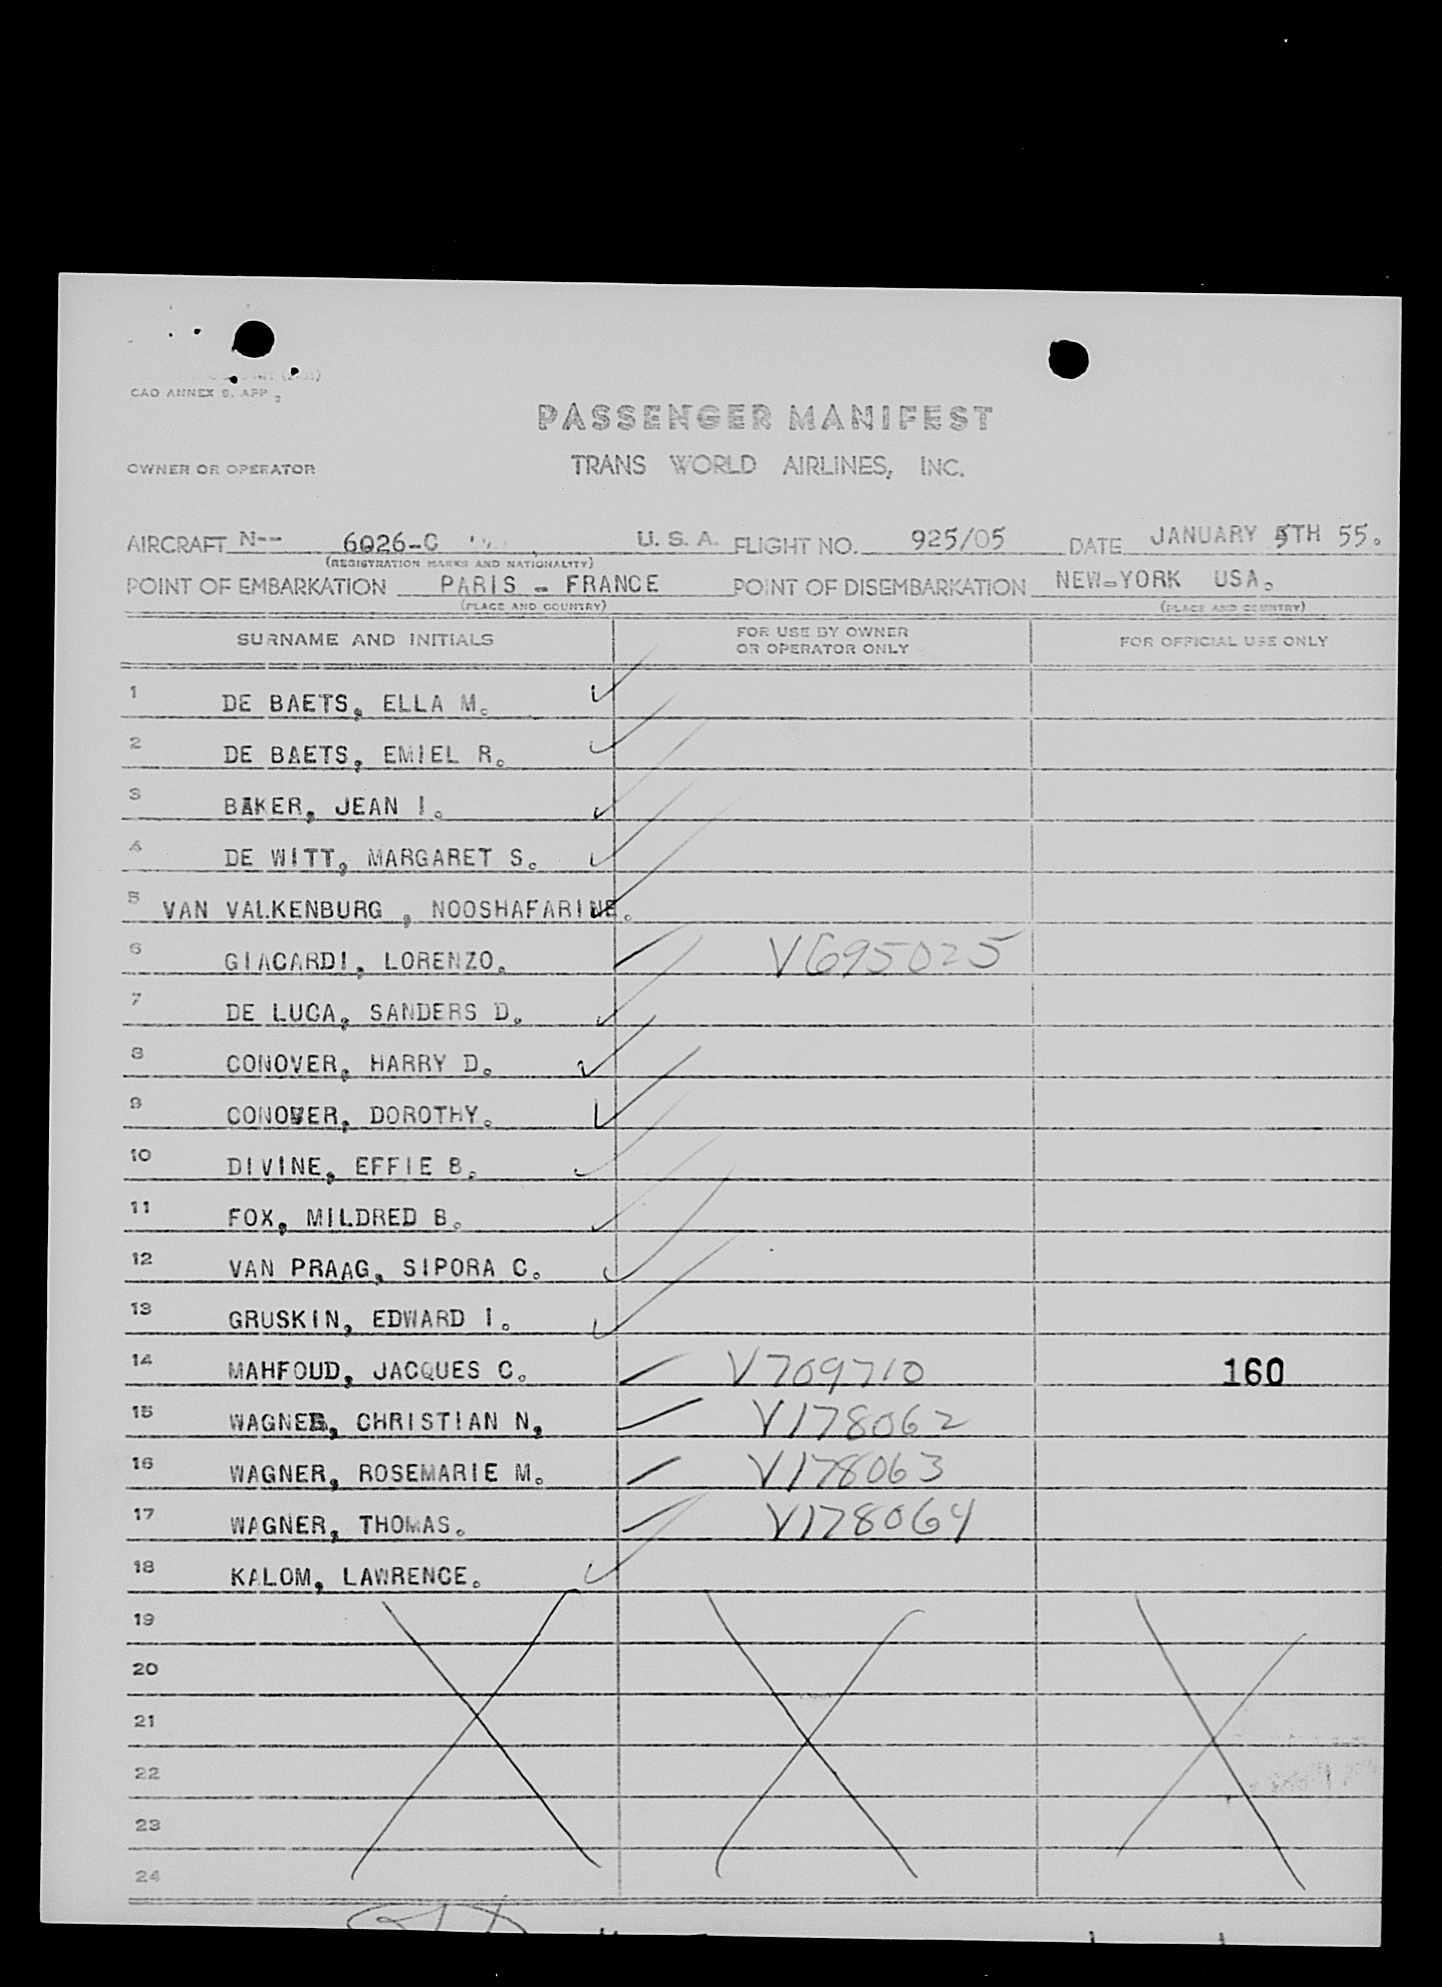 CAO ANNEX 9, APP 2
PASSENGER MANIFEST
OWNER OR OPERATOR TRANS WORLD AIRLINES, INC.
AIRCRAFT N-- 6026-C U. S. A. FLIGHT NO. 925/05 DATE JANUARY 5TH 55.
(REGISTRATION MARKS AND NATIONALITY)
POINT OF EMBARKATION PARIS - FRANCE POINT OF DISEMBARKATION NEW-YORK USA.
(PLACE AND COUNTRY) (PLACE AND COUNTRY)
SURNAME AND INITIALS FOR USE BY OWNER OR OPERATOR ONLY FOR OFFICIAL USE ONLY
1 DE BAETS, ELLA M.
2 DE BAETS, EMIEL R.
3 BAKER, JEAN I.
4 DE WITT, MARGARET S.
5 VAN VALKENBURG , NOOSHAFARINE.
6 GIACARDI, LORENZO. V695025
7 DE LUCA, SANDERS D.
8 CONOVER, HARRY D.
9 CONOVER, DOROTHY.
10 DIVINE, EFFIE B.
11 FOX, MILDRED B.
12 VAN PRAAG, SIPORA C.
13 GRUSKIN, EDWARD I.
14 MAHFOUD, JACQUES C. V709710 160
15 WAGNER, CHRISTIAN N, V178062
16 WAGNER, ROSEMARIE M. V178063
17 WAGNER, THOMAS. V178064
18 KALOM, LAWRENCE.
19
20
21
22
23
24